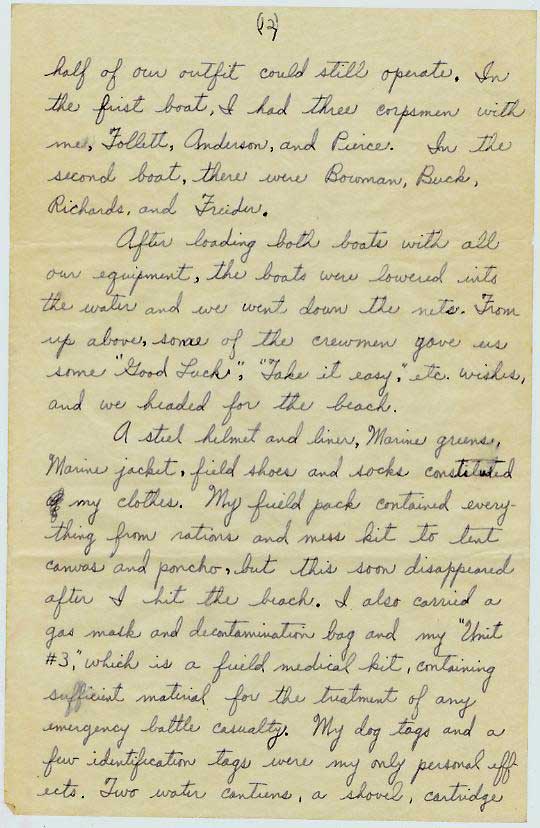 (12)
half of our outfit could still operate. In
the first boat, I had three corpsmen with
me, Follett, Anderson, and Pierce. In the
second boat, there were Bowman, Buck,
Richards, and Freider.
After loading both boats with all
our equipment, the boats were lowered into
the water and we went down the nets. From
up above, some of the crewmen gave us
some "Good Luck", "Take it easy," etc. wishes,
and we headed for the beach.
A steel helmet and liner, Marine greens,
Marine jacket, field shoes and socks constituted
my clothes. My field pack contained every-
thing from rations and mess kit to tent
canvas and poncho, but this soon disappeared
after I hit the beach. I also carried a
gas mask and decontamination bag and my "Unit
#3," which is a field medical kit, containing
sufficient material for the treatment of any
emergency battle casualty. My dog tags and a
few identification tags were my only personal eff-
ects. Two water canteens, a shovel, cartridge